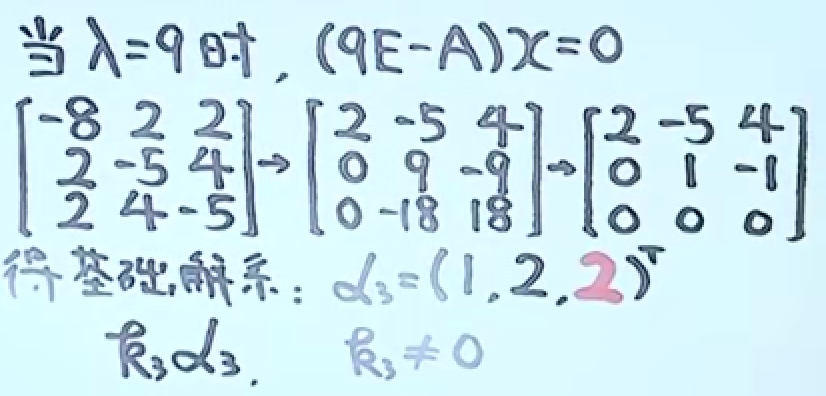 当λ=9时, (9E-A)x=0
[-8 2 2; 2 -5 4; 2 4 -5] → [2 -5 4; 0 9 -9; 0 -18 18] → [2 -5 4; 0 1 -1; 0 0 0]
得基础解系: α₃=(1,2,2)ᵀ
k₃α₃. k₃≠0